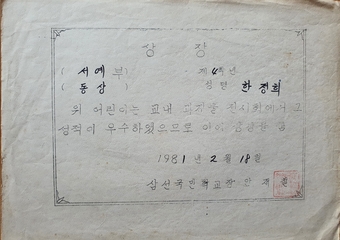 상 장
( 서예 부 ) 제4학년
( 동상 ) 성명 한경희
위 어린이는 교내 과제물 전시회에서 그
성적이 우수하였으므로 이에
1981 년 2 월 18 일
삼선국민학교장